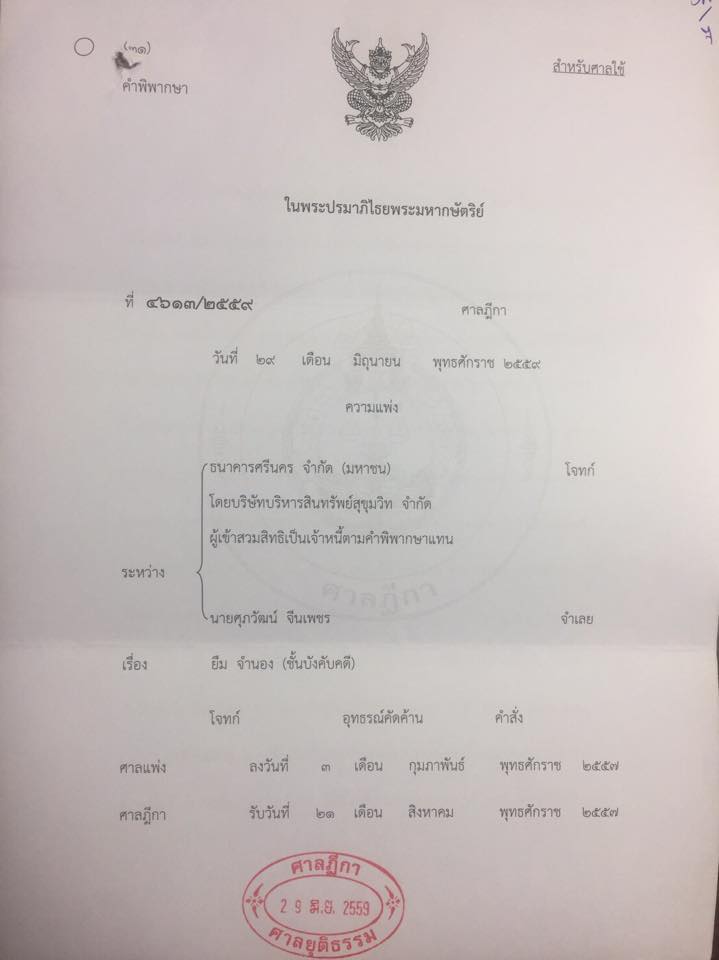 (๓๑)
สำหรับศาลใช้
คำพิพากษา
ในพระปรมาภิไธยพระมหากษัตริย์
ที่ ๔๖๑๓/๒๕๕๙ ศาลฎีกา
วันที่ ๒๙ เดือน มิถุนายน พุทธศักราช ๒๕๕๙
ความแพ่ง
ธนาคารศรีนคร จำกัด (มหาชน) โจทก์
โดยบริษัทบริหารสินทรัพย์สุขุมวิท จำกัด
ผู้เข้าสวมสิทธิเป็นเจ้าหนี้ตามคำพิพากษาแทน
ระหว่าง
ศาลฎีกา
นายศุภวัฒน์ จีนเพชร จำเลย
เรื่อง ยืม จำนอง (ชั้นบังคับคดี)
โจทก์ อุทธรณ์คัดค้าน คำสั่ง
ศาลแพ่ง ลงวันที่ ๓ เดือน กุมภาพันธ์ พุทธศักราช ๒๕๕๗
ศาลฎีกา รับวันที่ ๒๑ เดือน สิงหาคม พุทธศักราช ๒๕๕๗
ศาลฎีกา
29 มิ.ย. 2559
ศาลยุติธรรม